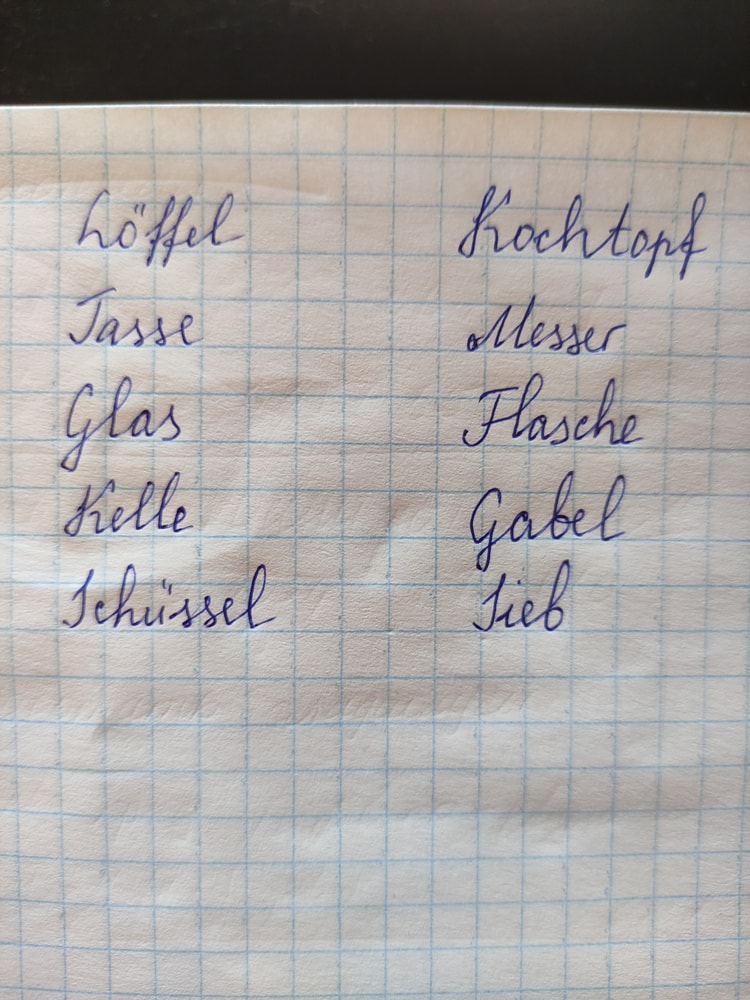 Löffel Kochtopf
Tasse Messer
Glas Flasche
Kelle Gabel
Schüssel Sieb